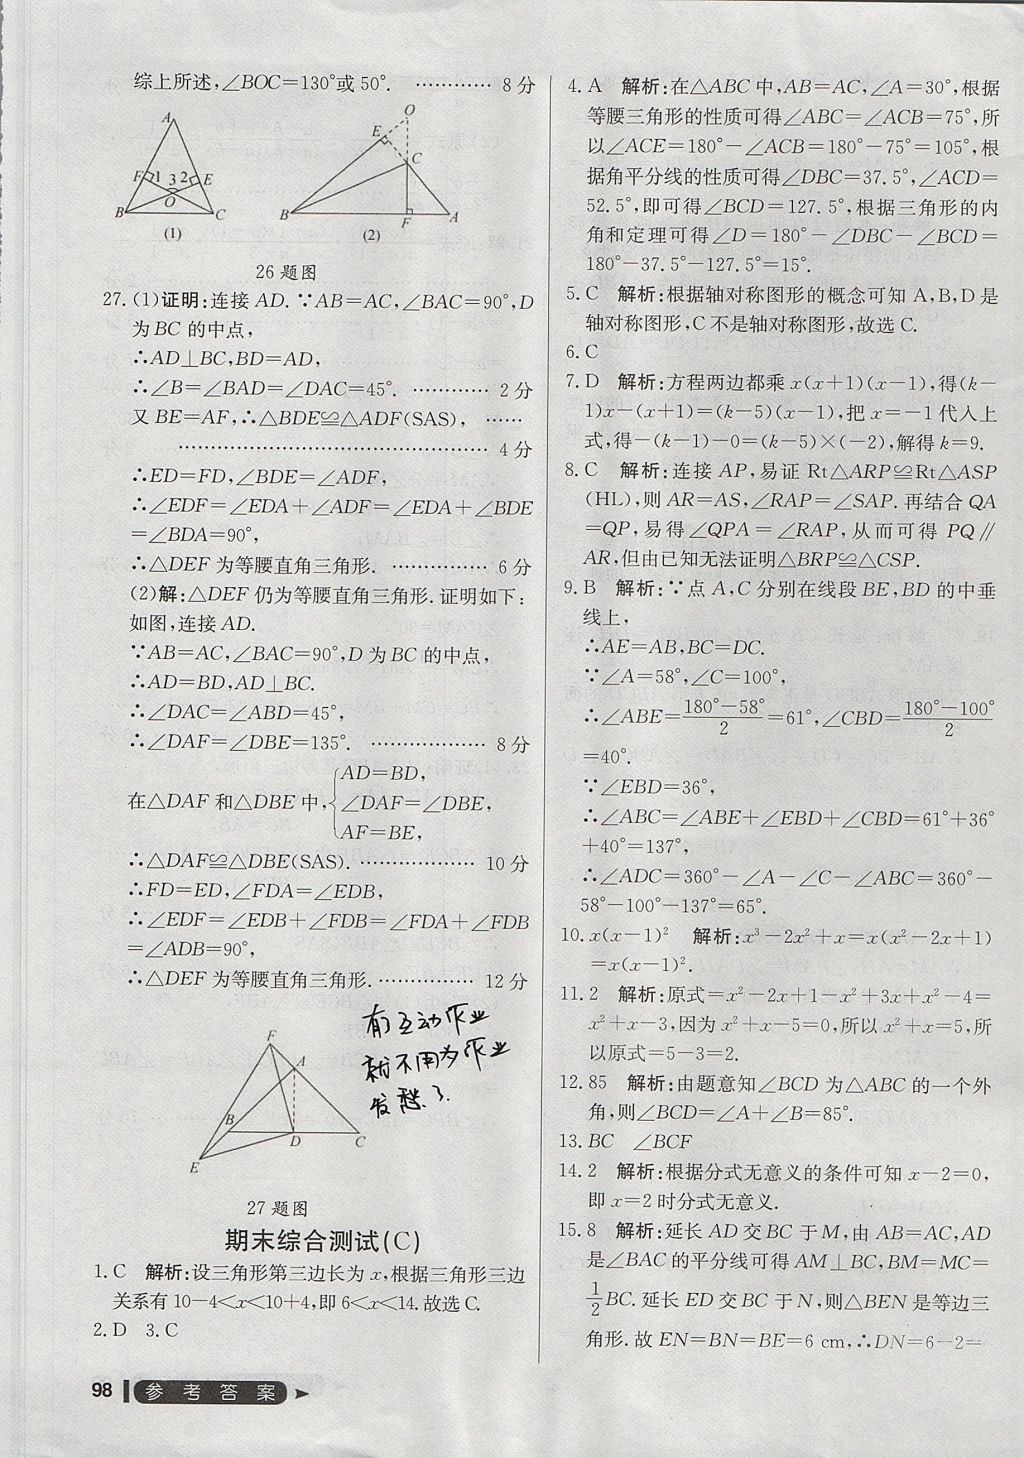 综上所述,∠BOC=130°或50°. ………… 8分
A
F 1 3 2 E
O
B C
(1)
O
E
C
B F A
(2)
26题图
27.(1)证明:连接AD.∵AB=AC,∠BAC=90°,D
为BC的中点,
∴AD⊥BC,BD=AD,
∴∠B=∠BAD=∠DAC=45°. ………… 2分
又BE=AF,∴△BDE≌△ADF(SAS), ……
………………………………………… 4分
∴ED=FD,∠BDE=∠ADF,
∴∠EDF=∠EDA+∠ADF=∠EDA+∠BDE
=∠BDA=90°,
∴△DEF为等腰直角三角形. …………… 6分
(2)解:△DEF仍为等腰直角三角形.证明如下:
如图,连接AD.
∵AB=AC,∠BAC=90°,D为BC的中点,
∴AD=BD,AD⊥BC.
∴∠DAC=∠ABD=45°,
∴∠DAF=∠DBE=135°. ……………… 8分
在△DAF和△DBE中,{AD=BD,
∠DAF=∠DBE,
AF=BE,
∴△DAF≌△DBE(SAS). ……………… 10分
∴FD=ED,∠FDA=∠EDB,
∴∠EDF=∠EDB+∠FDB=∠FDA+∠FDB
=∠ADB=90°,
∴△DEF为等腰直角三角形. …………… 12分
有互动作业
就不用为作业
发愁了
F
A
B
D C
E
27题图
期末综合测试(C)
1.C 解析:设三角形第三边长为x,根据三角形三边
关系有10-4<x<10+4,即6<x<14.故选C.
2.D 3.C
4.A 解析:在△ABC中,AB=AC,∠A=30°,根据
等腰三角形的性质可得∠ABC=∠ACB=75°,所
以∠ACE=180°-∠ACB=180°-75°=105°,根
据角平分线的性质可得∠DBC=37.5°,∠ACD=
52.5°,即可得∠BCD=127.5°,根据三角形的内
角和定理可得∠D=180°-∠DBC-∠BCD=
180°-37.5°-127.5°=15°.
5.C 解析:根据轴对称图形的概念可知A,B,D是
轴对称图形,C不是轴对称图形,故选C.
6.C
7.D 解析:方程两边都乘x(x+1)(x-1),得(k-
1)x-(x+1)=(k-5)(x-1),把x=-1代入上
式,得-(k-1)-0=(k-5)×(-2),解得k=9.
8.C 解析:连接AP,易证Rt△ARP≌Rt△ASP
(HL),则AR=AS,∠RAP=∠SAP.再结合QA
=QP,易得∠QPA=∠RAP,从而可得PQ∥
AR,但由已知无法证明△BRP≌△CSP.
9.B 解析:∵点A,C分别在线段BE,BD的中垂
线上,
∴AE=AB,BC=DC.
∵∠A=58°,∠C=100°,
∴∠ABE=(180°-58°)/2=61°,∠CBD=(180°-100°)/2
=40°.
∵∠EBD=36°,
∴∠ABC=∠ABE+∠EBD+∠CBD=61°+36°
+40°=137°,
∴∠ADC=360°-∠A-∠C-∠ABC=360°-
58°-100°-137°=65°.
10.x(x-1)² 解析:x³-2x²+x=x(x²-2x+1)
=x(x-1)².
11.2 解析:原式=x²-2x+1-x²+3x+x²-4=
x²+x-3,因为x²+x-5=0,所以x²+x=5,所
以原式=5-3=2.
12.85 解析:由题意知∠BCD为△ABC的一个外
角,则∠BCD=∠A+∠B=85°.
13.BC ∠BCF
14.2 解析:根据分式无意义的条件可知x-2=0,
即x=2时分式无意义.
15.8 解析:延长AD交BC于M,由AB=AC,AD
是∠BAC的平分线可得AM⊥BC,BM=MC=
1/2BC.延长ED交BC于N,则△BEN是等边三
角形.故EN=BN=BE=6 cm,∴DN=6-2=
98 参考答案